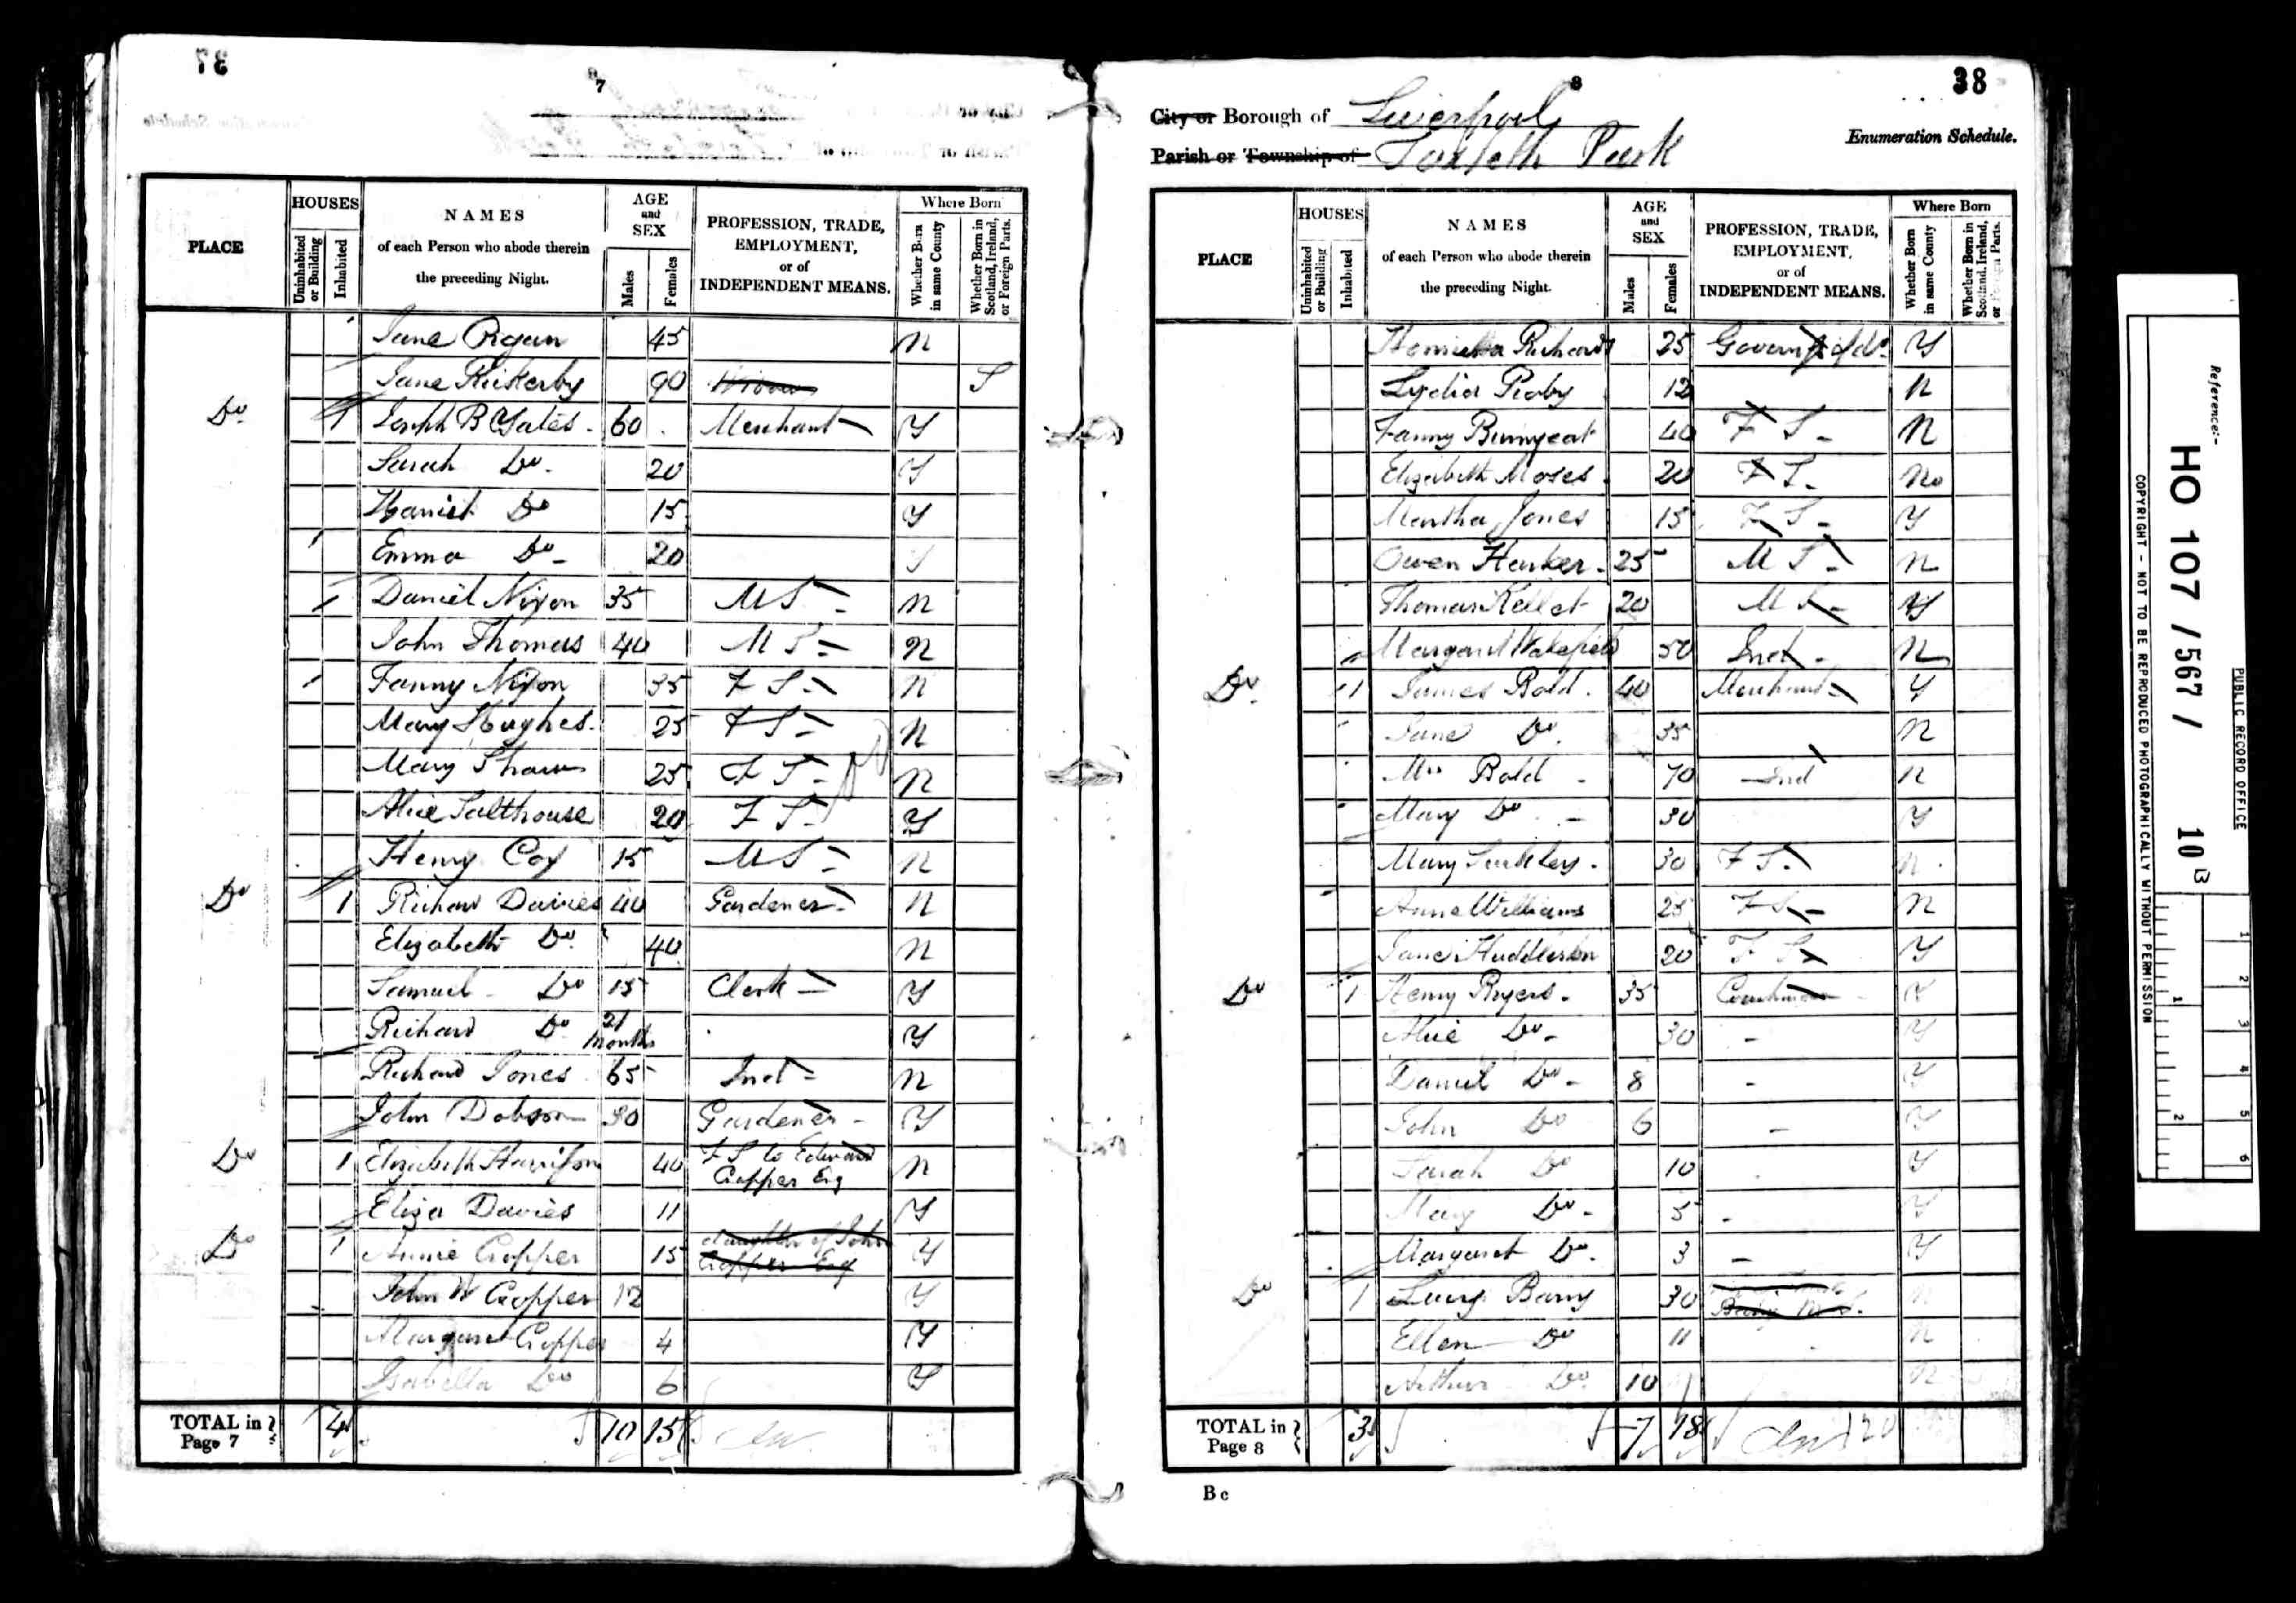 37
7
PLACE
HOUSES
Uninhabited or Building
Inhabited
NAMES
of each Person who abode therein
the preceding Night.
AGE
and
SEX
Males
Females
PROFESSION, TRADE,
EMPLOYMENT,
or of
INDEPENDENT MEANS.
Where Born
Whether Born in same County
Whether Born in Scotland, Ireland, or Foreign Parts.
Jane 45 N
Jane Rickerby 90 S
Do 1 Joseph B Yates 60 Merchant Y
Sarah Do 20 Y
Harriet Do 15 Y
Emma Do 20 Y
Daniel Nixon 35 M S N
John Thomas 40 M S N
Fanny Nixon 35 F S N
Mary Hughes 25 F S N
Mary Shaw 25 F S N
Alice Salthouse 20 F S Y
Henry Cox 15 M S N
Do 1 Richard Davies 40 Gardener N
Elizabeth Do 40 N
Samuel Do 15 Clerk Y
Richard Do 21 Months Y
Richard Jones 65 Ind N
John Dobson 30 Gardener Y
Do 1 Elizabeth Harrison 40 F S to Edward Cropper Esq N
Eliza Davies 11 Y
Do 1 Annie Cropper 15 daughter of John Cropper Esq Y
John W Cropper 12 Y
Margaret Cropper 4 Y
Isabella Do 6 Y
TOTAL in Page 7 4 10 15
38
8
City or Borough of Liverpool
Parish or Township of Toxteth Park
Enumeration Schedule.
PLACE
HOUSES
Uninhabited or Building
Inhabited
NAMES
of each Person who abode therein
the preceding Night.
AGE
and
SEX
Males
Females
PROFESSION, TRADE,
EMPLOYMENT,
or of
INDEPENDENT MEANS.
Where Born
Whether Born in same County
Whether Born in Scotland, Ireland, or Foreign Parts.
Henrietta Richards 25 Y
Lydia 12 N
Fanny Burnyeat 40 F S N
Elizabeth Moses 20 F S No
Martha Jones 15 F S Y
Owen Harker 25 M S N
Thomas Kellet 20 M S Y
Margaret Wakefield 50 Ind N
Do 1 James Bold 40 Merchant Y
Jane Do 35 N
Mrs Bold 70 Ind N
Mary Do 30 Y
Mary 30 F S N
Anne Williams 25 F S N
Jane Huddleston 20 F S Y
Do 1 Henry Ryers 35 Coachman Y
Alice Do 30 Y
Daniel Do 8 Y
John Do 6 Y
Sarah Do 10 Y
Mary Do 5 Y
Margaret Do 3 Y
Do 1 Lucy Barry 30 N
Ellen Do 11 N
Arthur Do 10 N
TOTAL in Page 8 3 7 18
B c
Reference:-
HO 107 / 567 / 10B
PUBLIC RECORD OFFICE
COPYRIGHT - NOT TO BE REPRODUCED PHOTOGRAPHICALLY WITHOUT PERMISSION
1
2
1
3
4
2
5
6